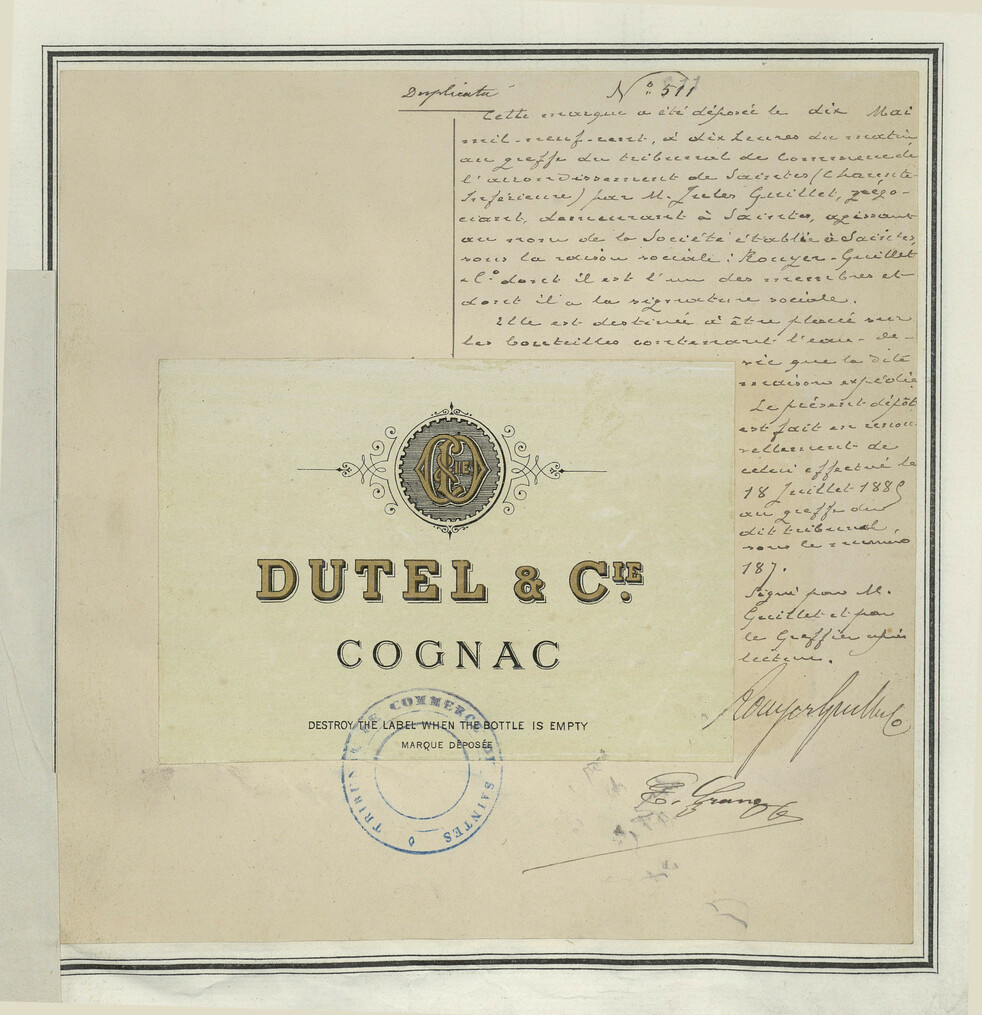 Duplicata
N° 511
Cette marque a été déposée le dix Mai
mil-neuf-cent, à dix heures du matin
au greffe du tribunal de Commerce de
l'arrondissement de Saintes (Charente
Inférieure) par M. Jules Guillet, négo-
ciant, demeurant à Saintes, agissant
au nom de la Société établie à Saintes,
sous la raison sociale : Rouyer-Guillet
& Cº dont il est l'un des membres et
dont il a la signature sociale.
Elle est destinée à être placée sur
les bouteilles contenant l'eau-de-
vie que la dite
maison expédie
Le présent dépôt
est fait en renou
vellement de
celui effectué le
18 Juillet 1885
au greffe du
dit tribunal,
sous le numéro
187.
Signé par M.
Guillet et par
le Greffier après
lecture.
Rouyer Guillet & Co
C & CIE D
DUTEL & CIE
COGNAC
DESTROY THE LABEL WHEN THE BOTTLE IS EMPTY
MARQUE DÉPOSÉE
TRIBUNAL DE COMMERCE DE SAINTES